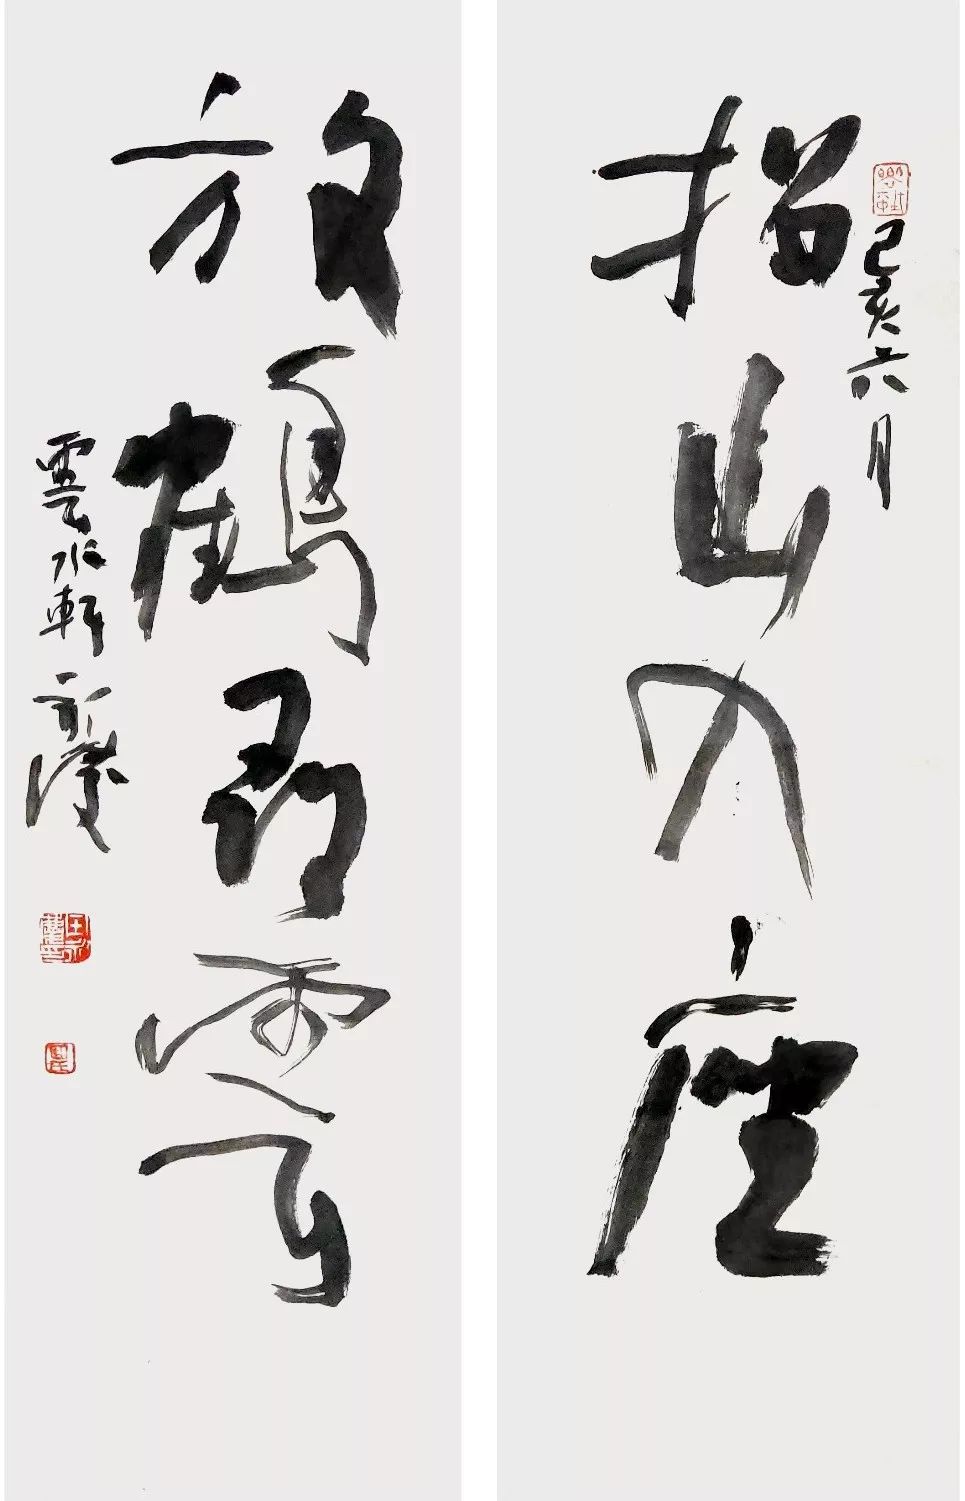 己亥六月
招山入座
放鶴尋雲
雲水軒